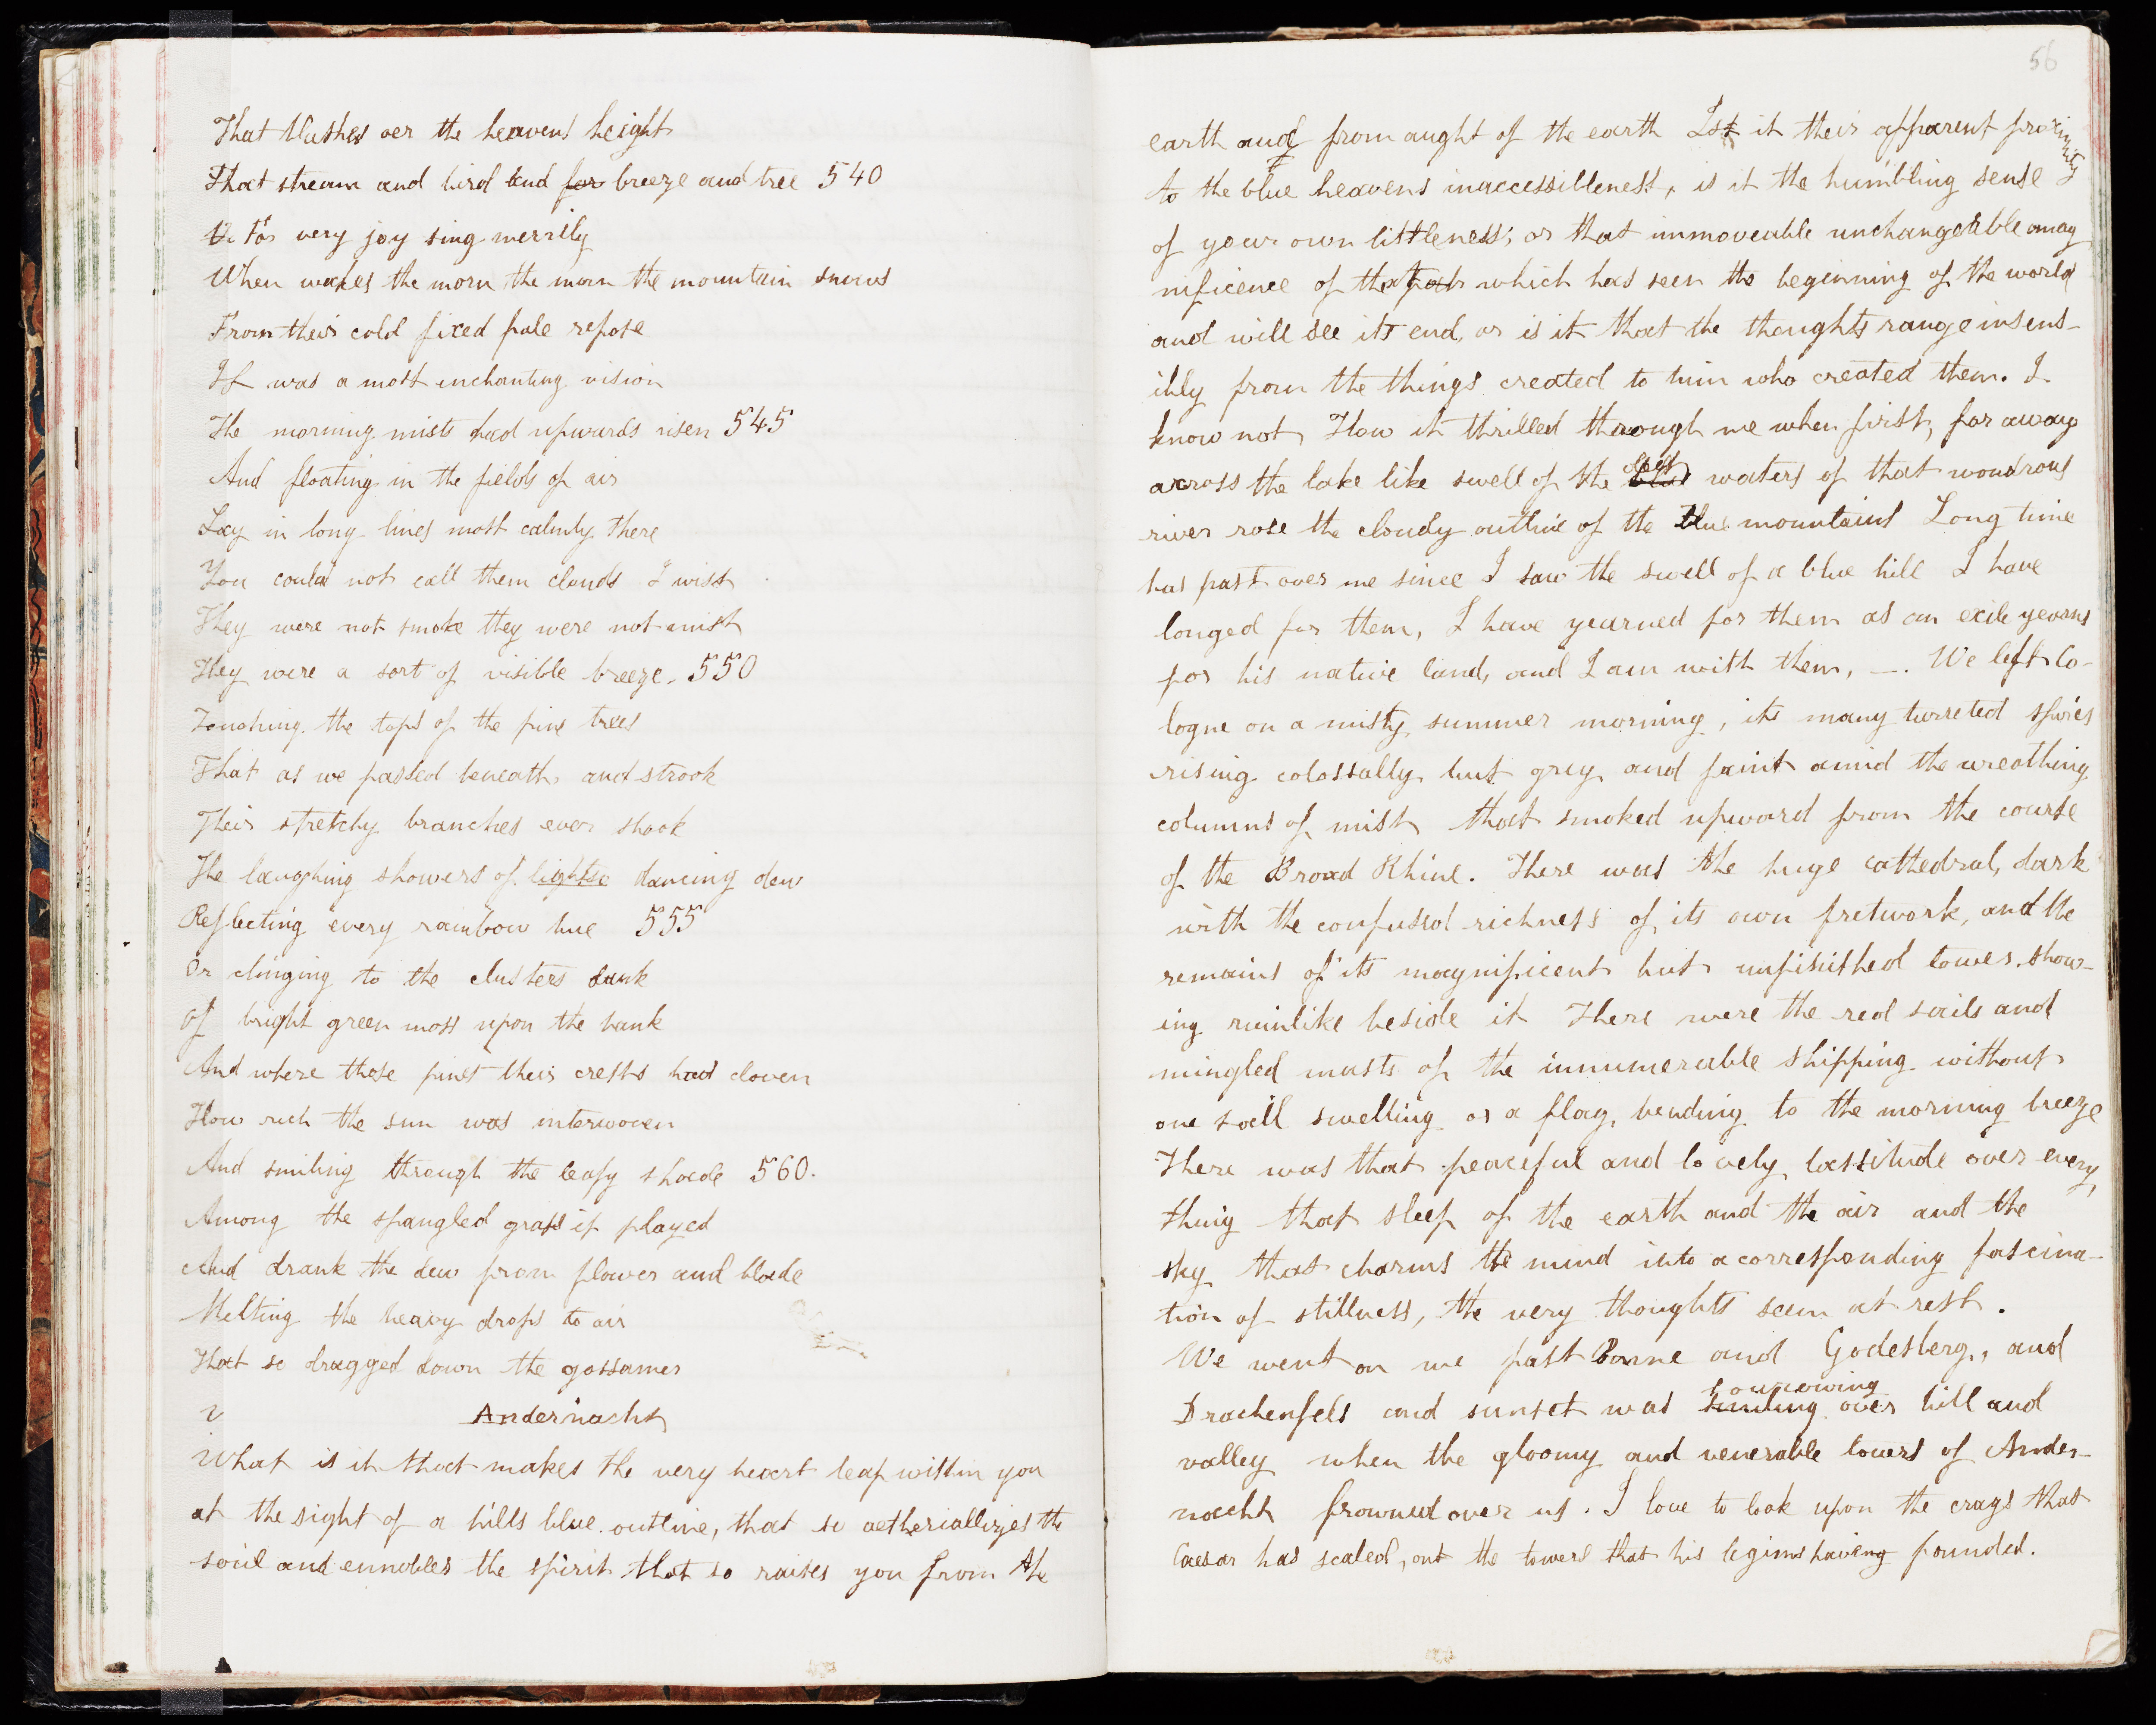 That blushes oer the heavens height
That stream and bird and for breeze and tree 540
For very joy sing merrily
When wakes the morn the morn the mountain snows
From their cold fixed pale repose
It was a most enchanting vision
The morning mists had upwards risen 545
And floating in the fields of air
Lay in long lines most calmly there
You could not call them clouds I wist
They were not smoke they were not mist
They were a sort of visible breeze. 550
Touching the tops of the pine trees
That as we passed beneath and strook
Their stretchy branches ever shook
The laughing showers of lightse dancing dew
Reflecting every rainbow hue 555
Or clinging to the clusters dank
Of bright green moss upon the bank
And where those pines their crests had cloven
How rich the sun was interwoven
And smiling through the leafy shade 560.
Among the spangled grass it played
And drank the dew from flower and blade
Melting the heavy drops to air
That so dragged down the gossamer
Andernacht
What is it that makes the very heart leap within you
at the sight of a hills blue outline, that so aetheriallizes the
soul and ennobles the spirit that so raises you from the
56
earth and from aught of the earth Ist it their apparent proximity
to the blue heavens inaccessibleness, is it the humbling sense
of your own littleness, or that immoveable unchangeable mag
nificence of that which has seen the beginning of the world
and will see its end, or is it that the thoughts range insens-
ibly from the things created to him who created them. I
know not How it thrilled through me when first, far away
across the lake like swell of the waters of that wondrous
river rose the cloudy outline of the blue mountains Long time
has past over me since I saw the swell of a blue hill I have
longed for them, I have yearned for them as an exile yearns
for his native land, and I am with them, —. We left Co-
logne on a misty summer morning, its many turreted spires
rising colossally but grey and faint amid the wreathing
columns of mist that smoked upward from the course
of the Broad Rhine. There was the huge cathedral, dark
with the confused richness of its own fretwork, and the
remains of its magnificent but unfinished tower. show-
ing ruinlike beside it There were the red sails and
mingled masts of the innumerable shipping without
one sail swelling or a flag bending to the morning breeze
There was that peaceful and lovely lassitude over every
thing that sleep of the earth and the air and the
sky that charms the mind into a corresponding fascina-
tion of stillness, the very thoughts seem at rest.
We went on we past Bonne and Godesberg, and
Drachenfels and sunset was smiling over hill and
valley when the gloomy and venerable towers of Ander-
nacht frowned over us. I love to look upon the crags that
Caesar has scaled, ont the towers that his legions having founded.